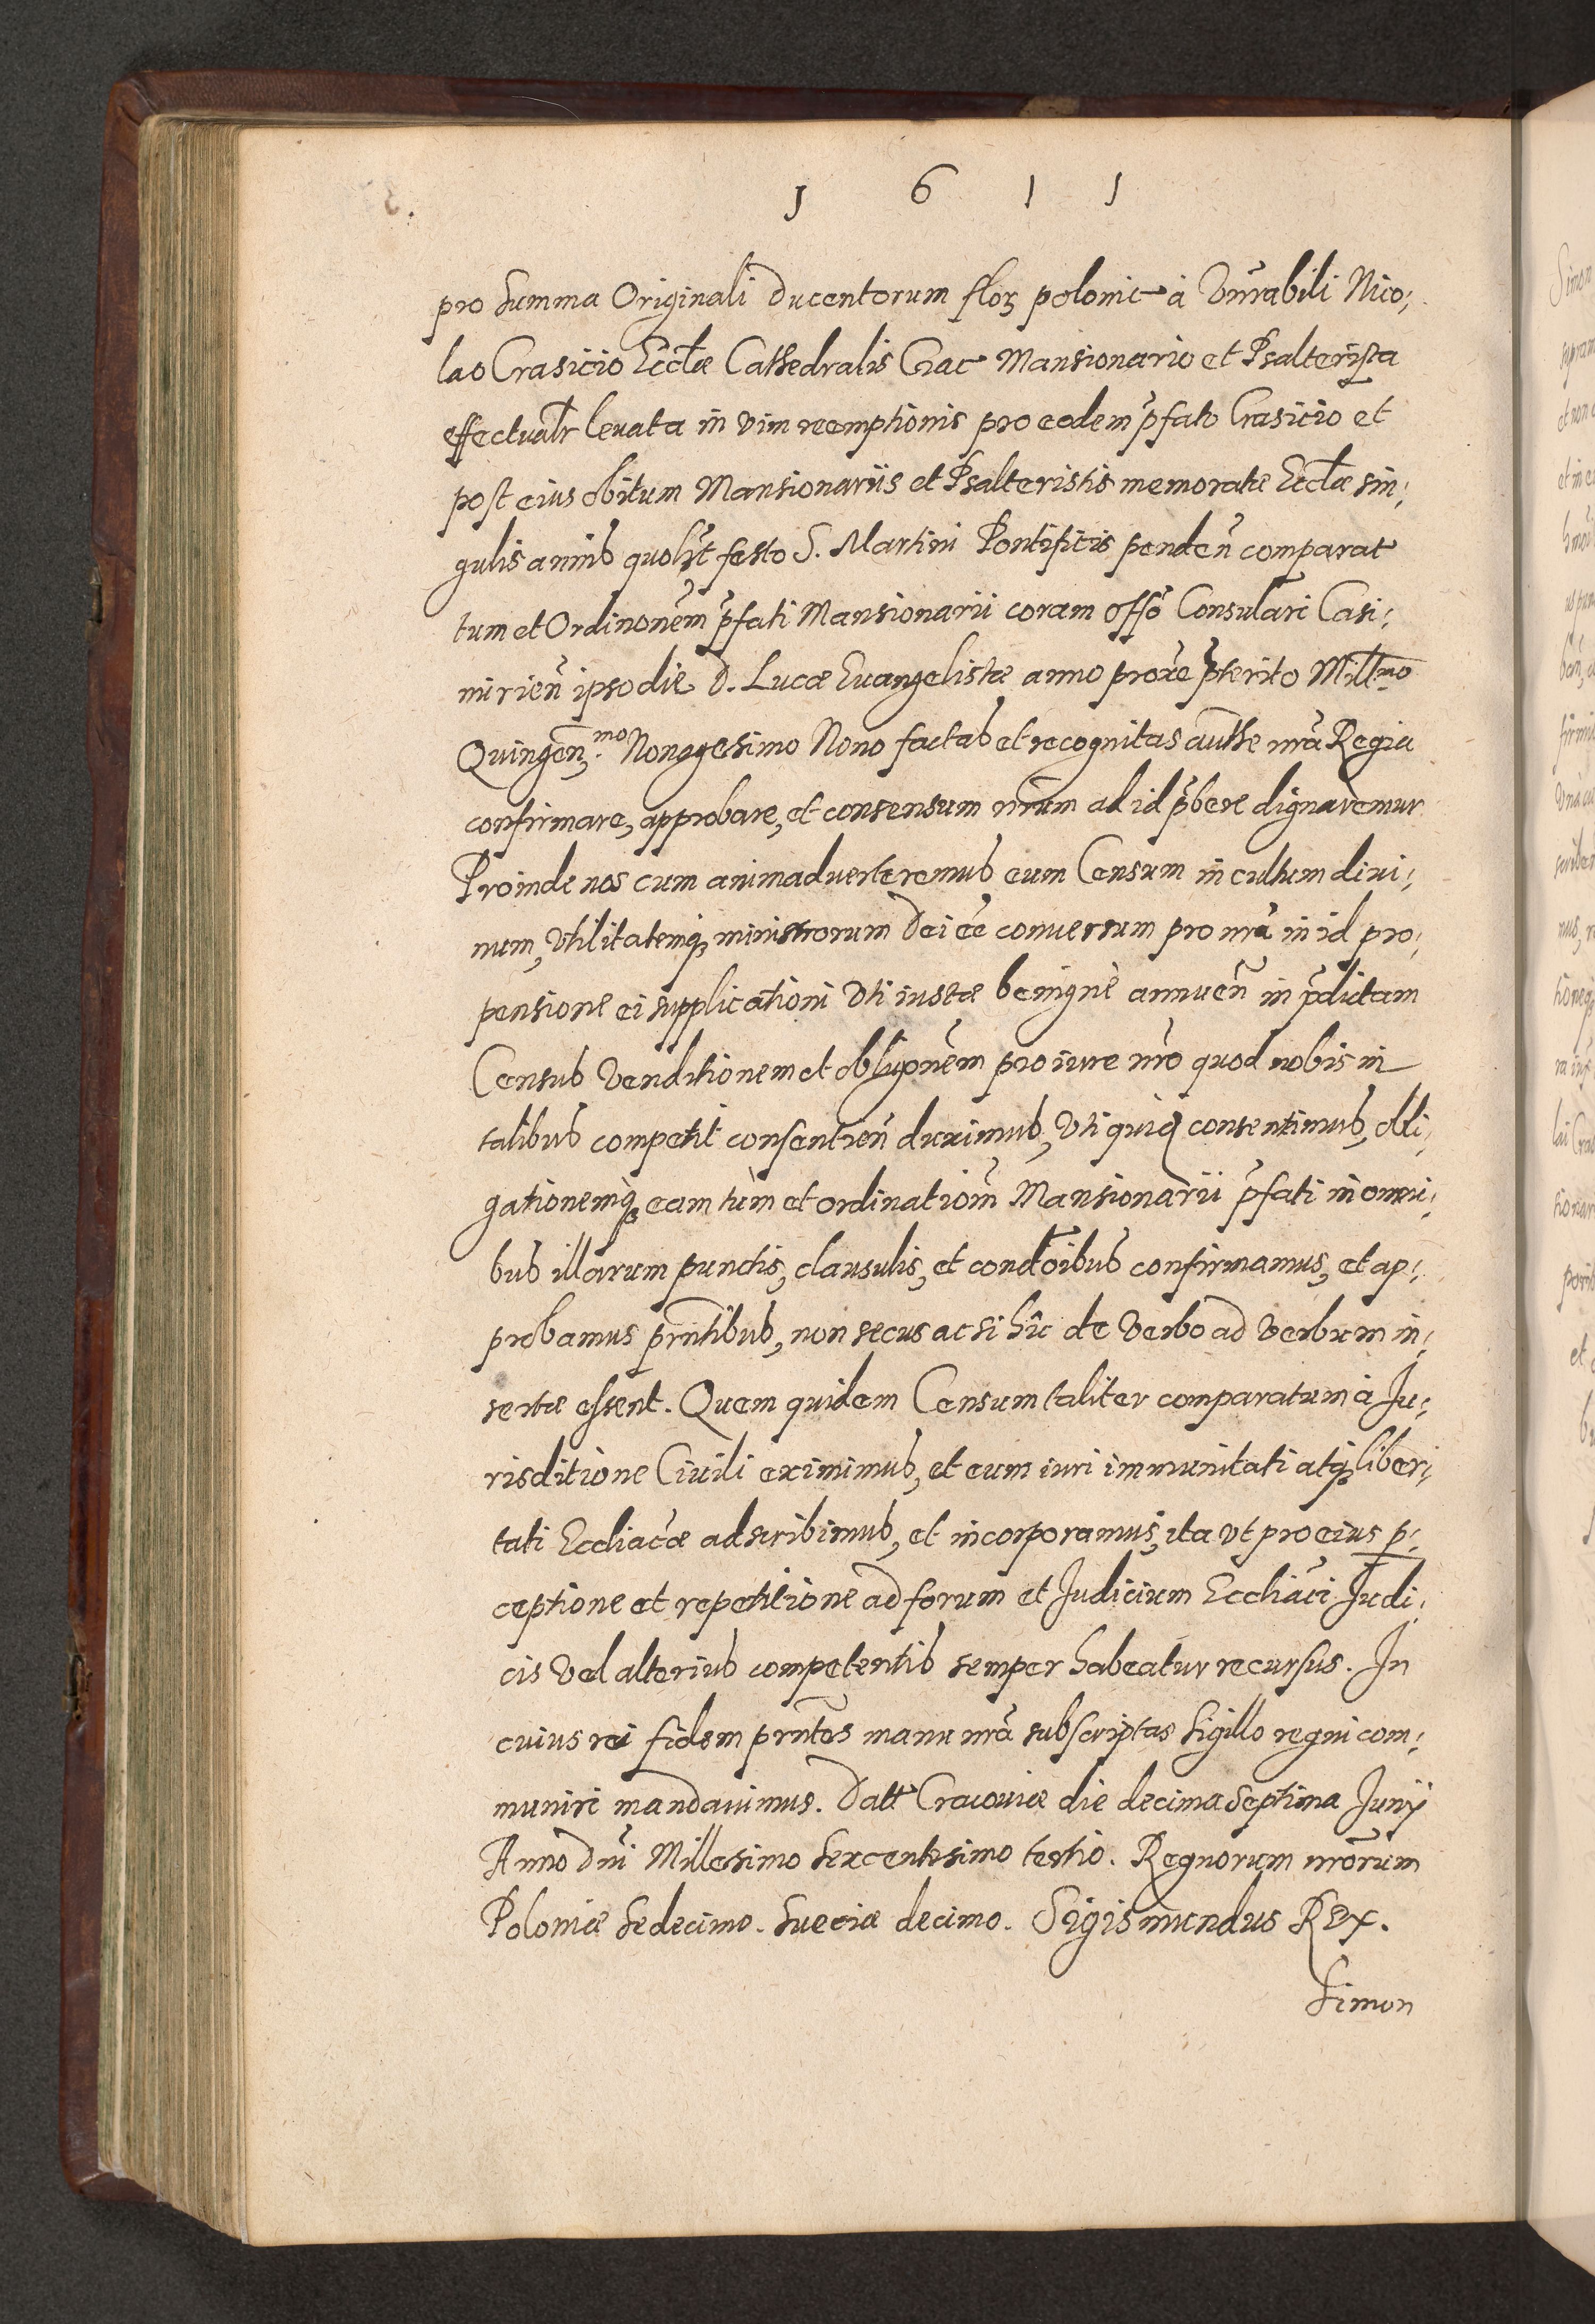 1 6 1 1
pro summa Originali Ducentorum flor polonic à Vnrabili Nico;
lao Crasicio Eccłæ Cathedralis Crac Mansionario et Psalterista
effectualr leuata in vim reemptionis pro eodem p̃fato Crasicio et
post eius obitum Mansionariis et Psalteristis memoratæ Eccłæ sin;
gulis annis quolȝt festo S. Martini Pontificis penden̄ comparat
tum et Ordinonem p̃fati Mansionarii coram offō Consulari Casi;
mirien̄ ipso die D. Lucæ Euangelistæ anno proxe p̃terito Millmo
Quingen.mo Nonagesimo Nono factas et recognitas authe nrã Regia
confirmare, approbare, et consensum nrũm ad id p̃bere dignaremur
Proinde nos cum animaduerteremus eum Censum in cultum diui;
num, Vtilitatemq; ministrorum Dei eẽ conuersum pro nrã in id pro;
pensione ei supplicationi Vti iustæ benignè annuen̄ in p̃dictam
Censũs Venditionem et obligonẽm pro iure nrõ quod nobis in
talibus competit consentien̄ duximus, Vti quidem consentimus, obli;
gationemq; eam tùm et ordinatiom̃ Mansionarii p̃fati in omni;
bus illarum punctis, clausulis, et condtõibus confirmamus, et ap;
probamus prñtibus, non secus ac si hîc de Verbo ad Verbum in;
sertæ essent. Quem quidem Censum taliter comparatum à Ju;
risditione Ciuili eximimus, et eum iuri immunitati atq; liber;
tati Eccliacæ adscribimus, et incorporamus, ita vt pro eius p;
ceptione et repetitione ad forum et Judicium Eccliãci Judi;
cis Vel alterius competentis semper habeatur recursus. In
cuius rei fidem prñtes manu nrã subscriptas sigillo regni com;
muniri mandauimus. Datt Cracouiæ die decima septima Junij
Anno Dñi Millesimo sexcentesimo tertio. Regnorum nrõrum
Poloniæ sedecimo. sueciæ decimo. Sigismundus Rex.
Simon